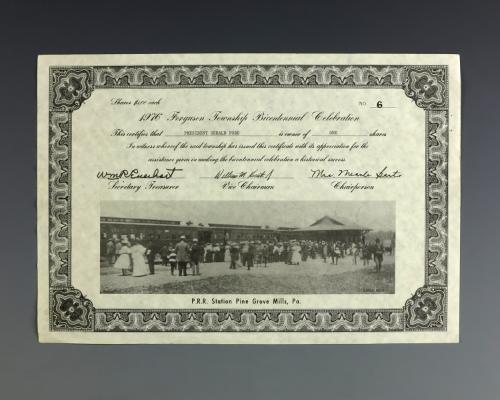 Shares $1.00 each
NO 6
1976 Ferguson Township Bicentennial Celebration
This certifies that PRESIDENT GERALD FORD is owner of ONE shares
In witness whereof the said township has issued this certificate with its appreciation for the
assistance given in making the bicentennial celebration a historical success.
Secretary Treasurer Vice Chairman Chairperson
P.R.R. Station Pine Grove Mills, Pa.